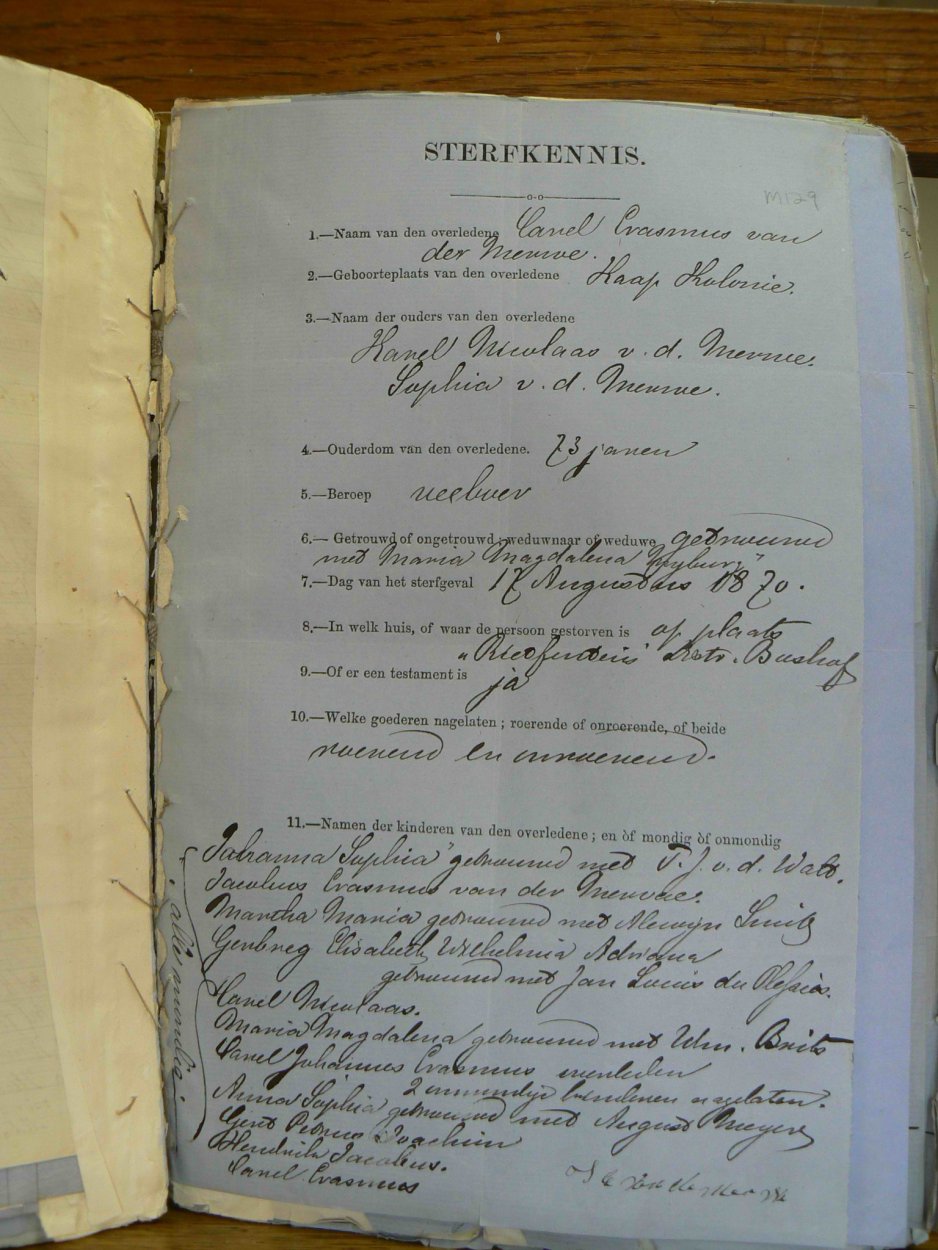 STERFKENNIS.
M129
1.—Naam van den overledene Carel Erasmus van
der Merwe.
2.—Geboorteplaats van den overledene Kaap Kolonie.
3.—Naam der ouders van den overledene
Karel Nicolaas v. d. Merwe.
Sophia v. d. Merwe.
4.—Ouderdom van den overledene. 73 jaren
5.—Beroep veeboer
6.—Getrouwd of ongetrouwd; weduwnaar of weduwe getrouwd
met Maria Magdalena
7.—Dag van het sterfgeval 17 Augustus 1870.
8.—In welk huis, of waar de persoon gestorven is op plaats
"Rietfontein" Distr. Boshof
9.—Of er een testament is
ja
10.—Welke goederen nagelaten; roerende of onroerende, of beide
roerend en onroerend.
11.—Namen der kinderen van den overledene; en òf mondig òf onmondig
Johanna Sophia getrouwd met P. J. v. d. Walt.
Jacobus Erasmus van der Merwe.
Martha Maria getrouwd met Alewyn Smit
Gerbreg Elisabeth Wilhelmia Adriana
getrouwd met Jan Louis du Plessis.
Carel Nicolaas.
Maria Magdalena getrouwd met Wm. Brits
Carel Johannes Erasmus overleden
2 onmondige kinderen nagelaten.
Anna Sophia getrouwd met August Meyer
Gert Petrus Joachim
Hendrik Jacobus.
Carel Erasmus
alle mondig.